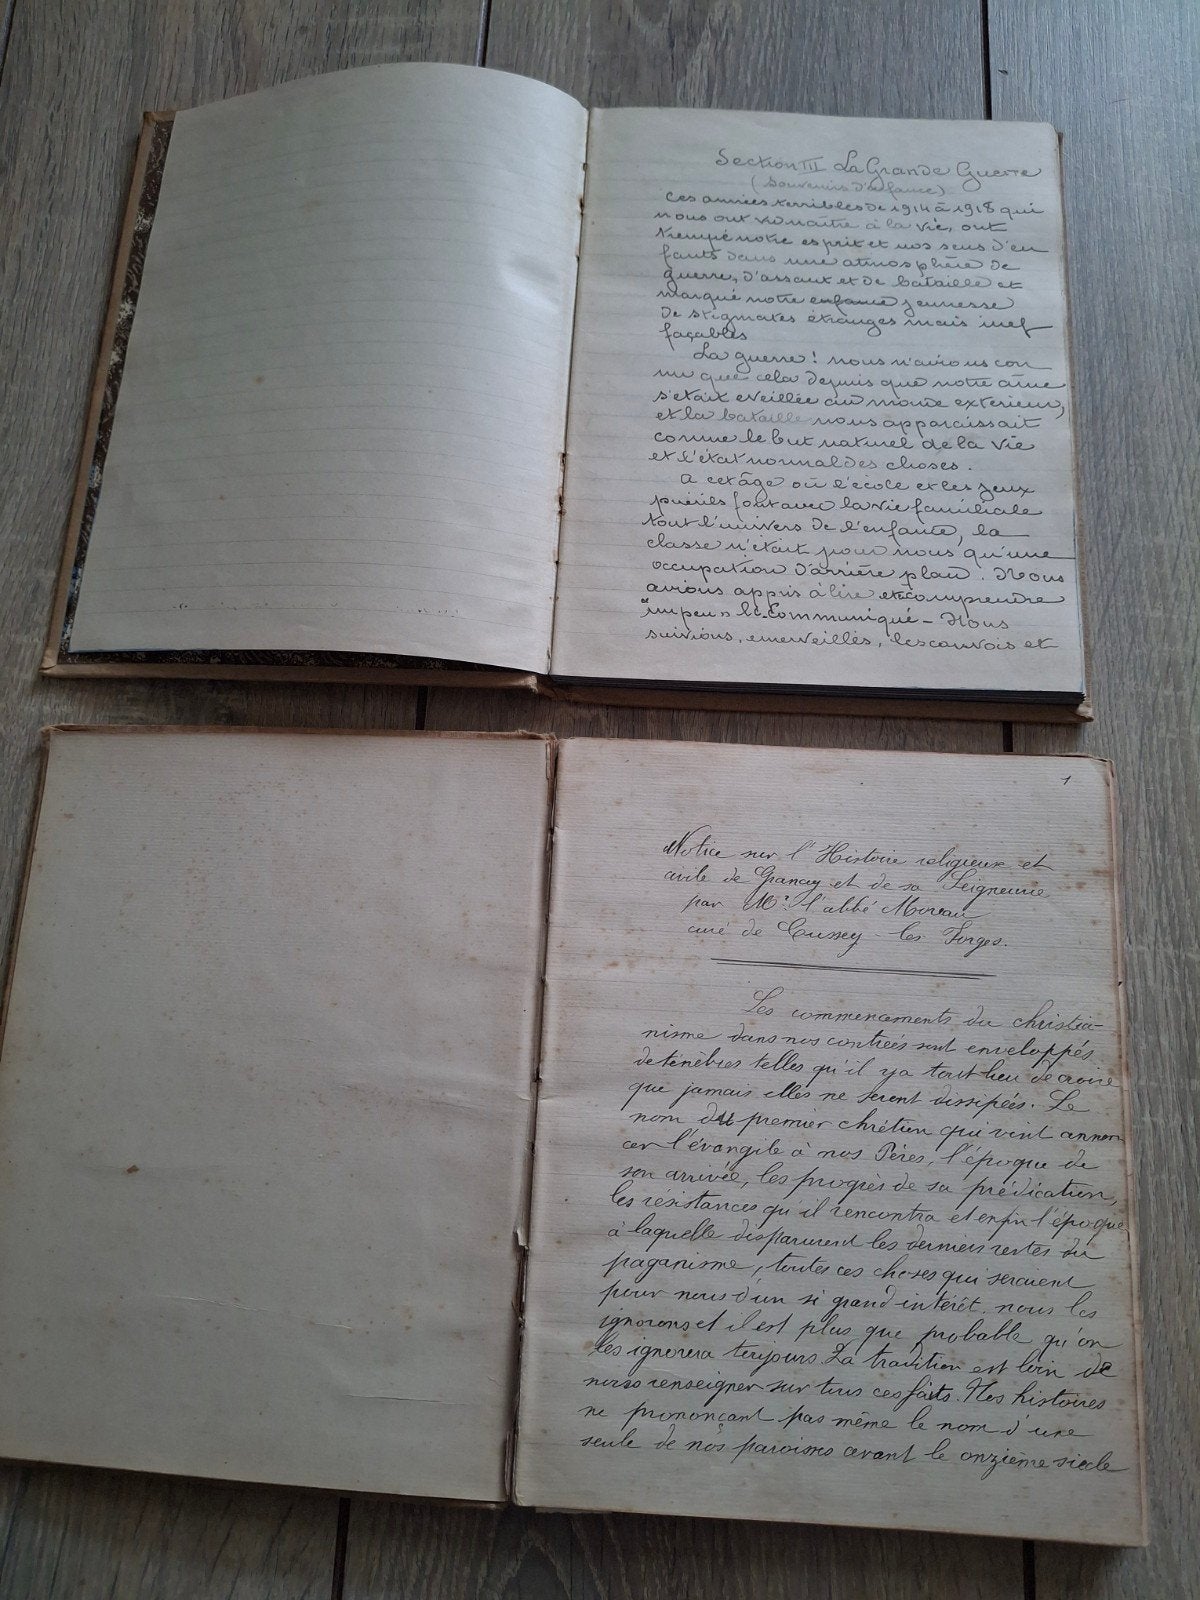 Section III La Grande Guerre
(Souvenirs d'enfance)
Ces années terribles de 1914 à 1918 qui
nous ont vu naître à la vie, ont
trempé notre esprit et nos sens d'en
fants dans une atmosphère de
guerre, d'assaut et de bataille et
marqué notre enfance jeunesse
de stigmates étranges mais inef
façables
La guerre ! nous n'avions con
nu que cela depuis que notre âme
s'était eveillée au monde exterieur,
et la bataille nous apparaissait
comme le but naturel de la vie
et l'état normal des choses.
A cet âge où l'école et les jeux
puérils font avec la vie familiale
tout l'univers de l'enfance, la
classe n'était pour nous qu'une
occupation d'arrière plan. Nous
avions appris à lire et comprendre
un peu le Communiqué - Nous
suivions, emerveillés, les convois et
1
Notice sur l'Histoire religieuse et
civile de Grancey et de sa Seigneurie
par Mr. l'abbé Moreau
curé de Cussey-les Forges.
Les commencements du christia-
nisme dans nos contrées sont enveloppés
de ténèbres telles qu'il y a tout lieu de croire
que jamais elles ne seront dissipées. Le
nom du premier chrétien qui vint annon
cer l'évangile à nos Pères, l'époque de
son arrivée, les progrès de sa prédication,
les résistances qu'il rencontra et enfin l'époque
à laquelle disparurent les derniers restes du
paganisme, toutes ces choses qui seraient
pour nous d'un si grand intérêt, nous les
ignorons et il est plus que probable qu'on
les ignorera toujours. La tradition est loin de
nous renseigner sur tous ces faits. Nos histoires
ne prononçant pas même le nom d'une
seule de nos paroisses avant le onzième siècle